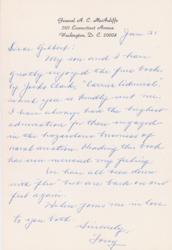 General A. C. McAuliffe
3101 Connecticut Avenue
Washington, D. C. 20008
Jan 21
Dear Gilbert:
My son and I have
greatly enjoyed the fine book
by Jocko Clark, "Carrier Admiral",
which you so kindly sent me.
I have always had the highest
admiration for those engaged
in the hazardous business of
naval aviation. Reading this book
has increased my feeling.
We have all been down
with "flu" but are back on our
feet again.
Helen joins me in love
to you both
Sincerely,
Tony